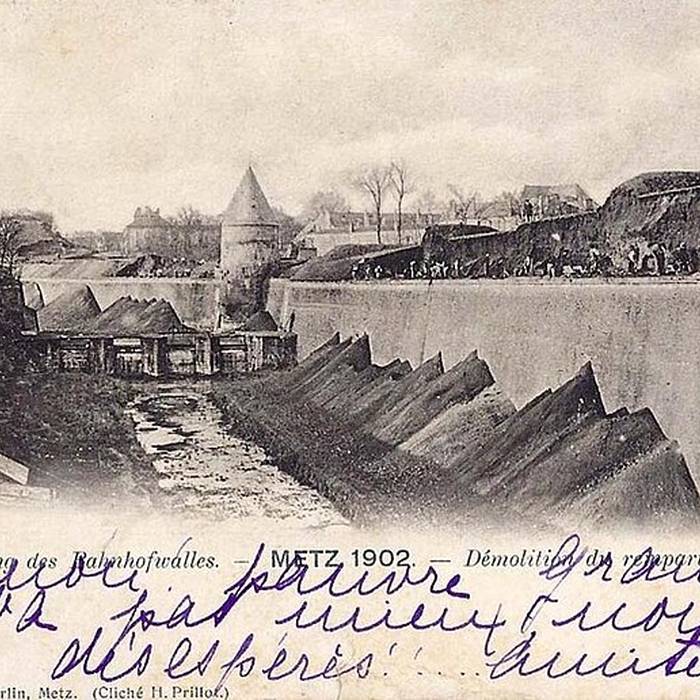 des Bahnhofwalles. — METZ 1902. — Démolition du rempar
pauvre Gran
va pas mieux nou
désespérés!.... amitié
rlin, Metz. (Cliché H. Prillot.)